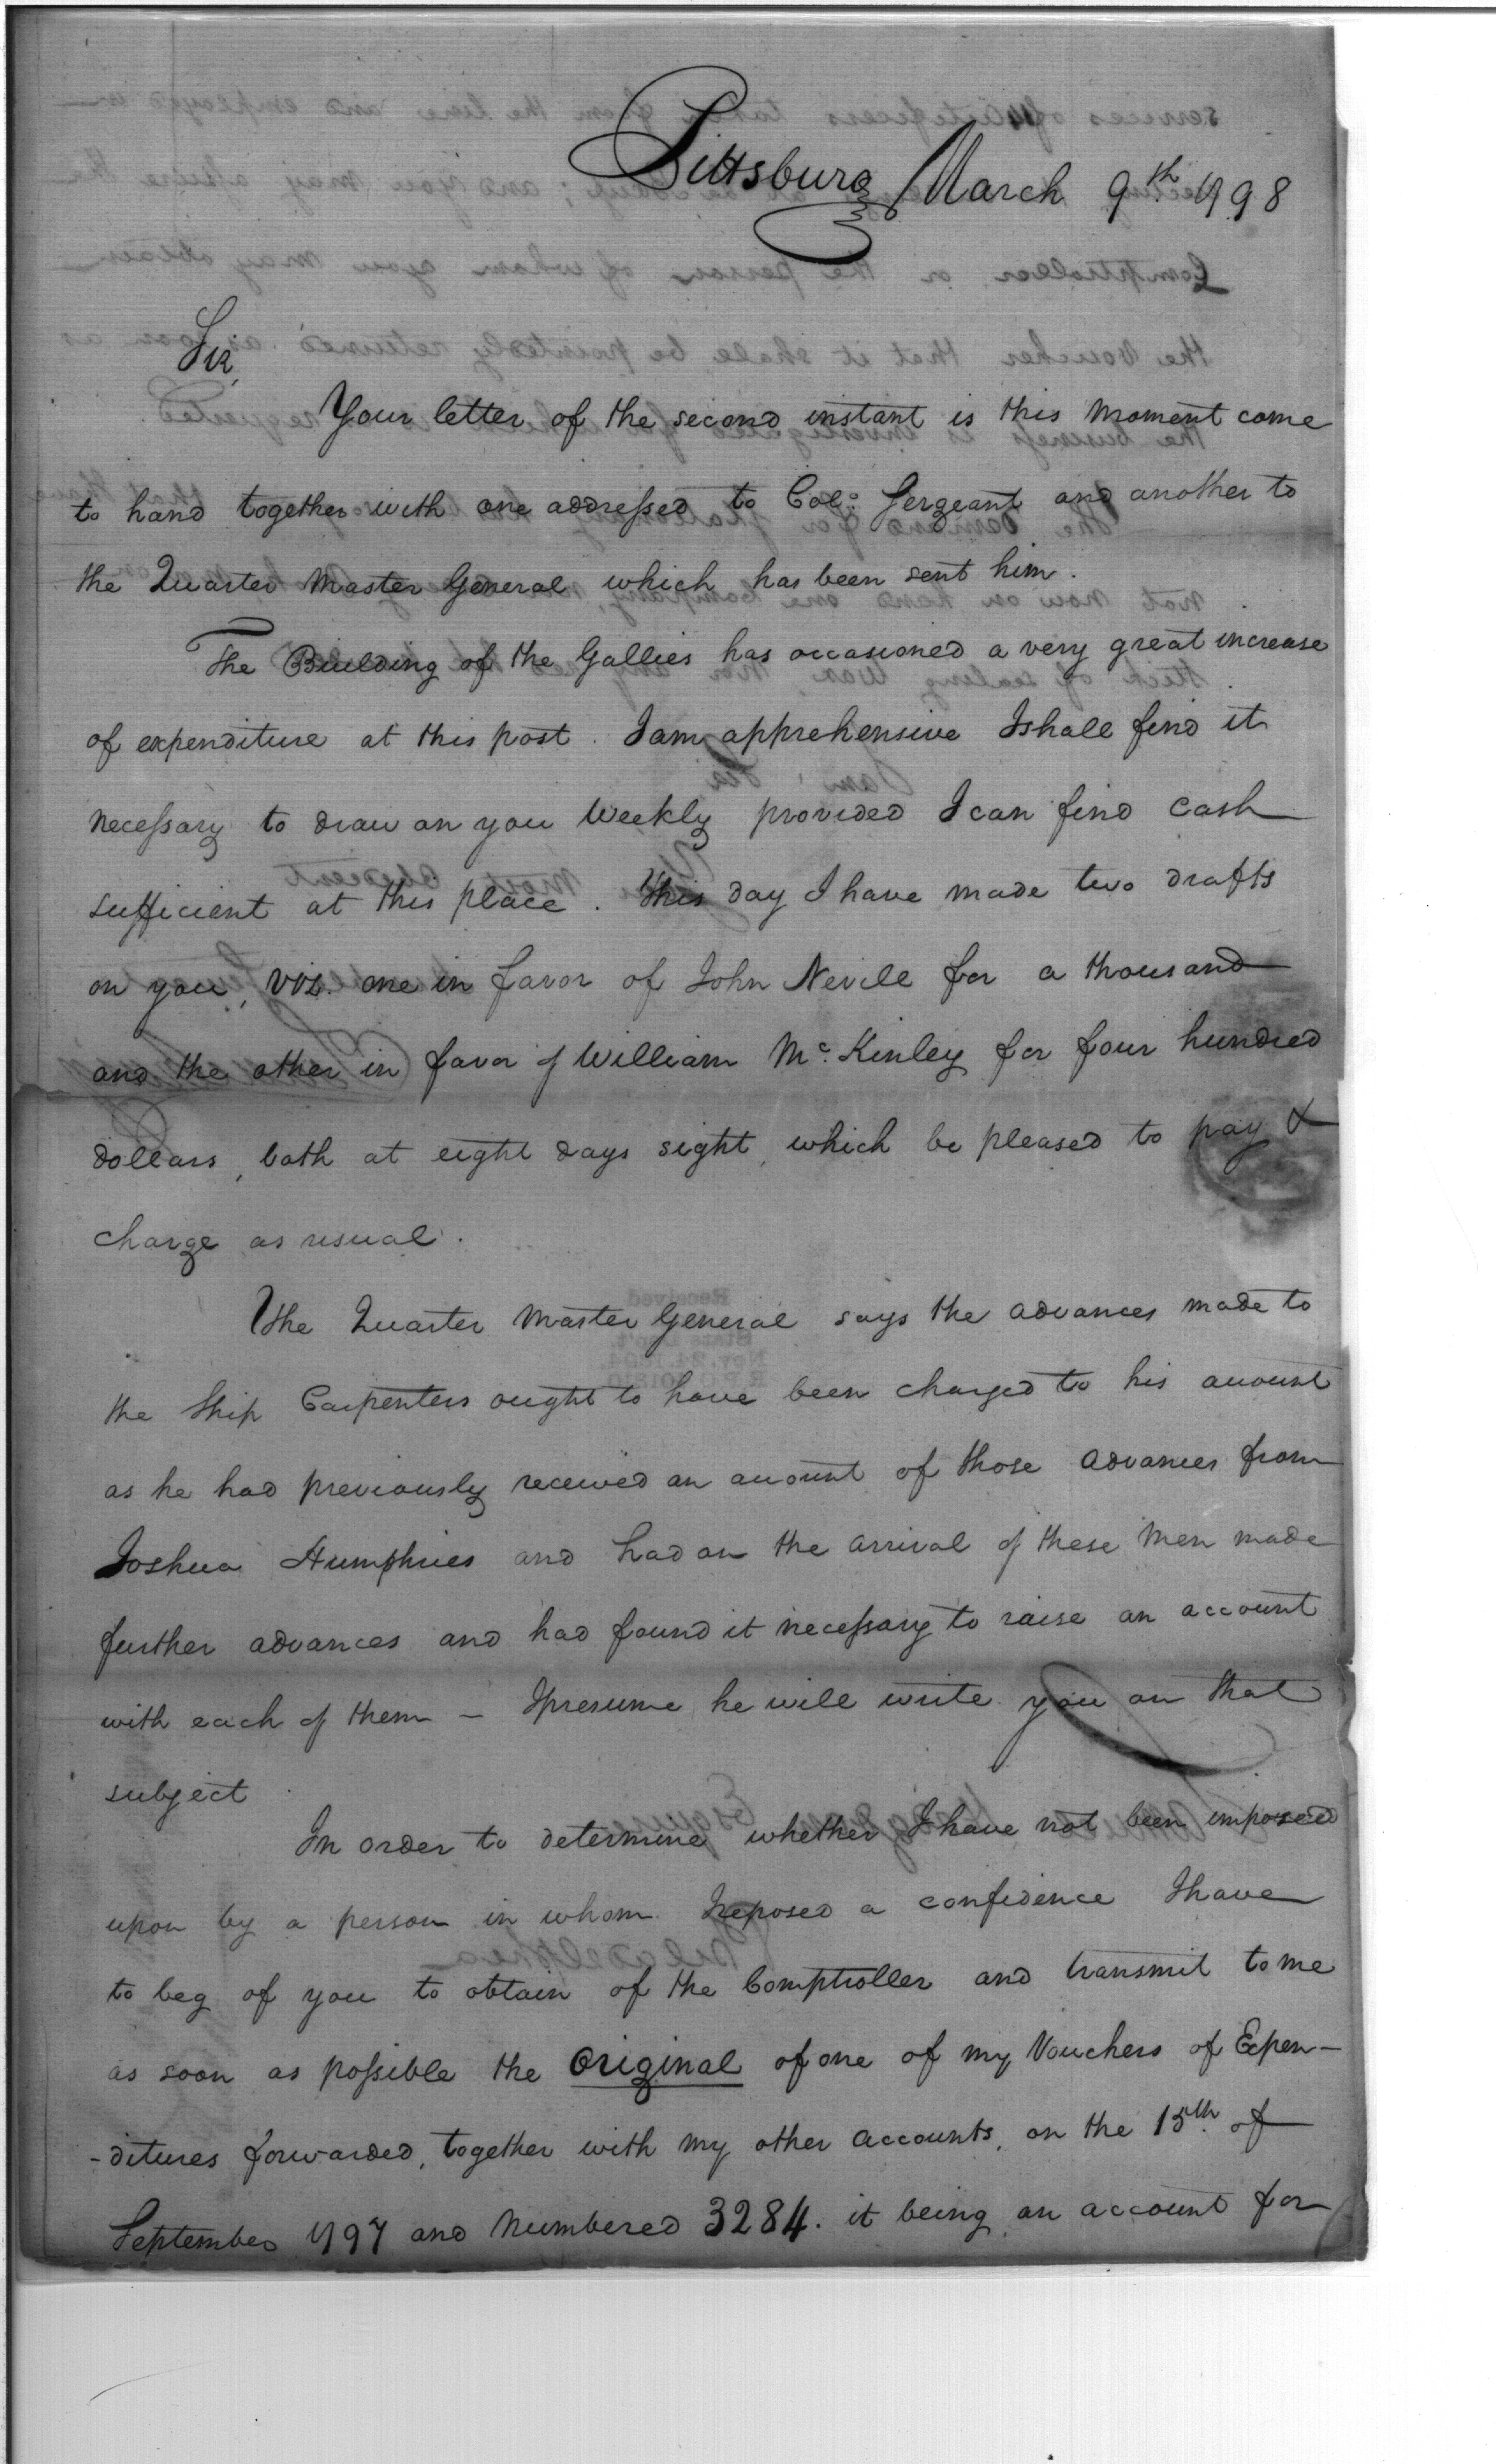 Pittsburg March 9th. 1798
Sir,
Your letter of the second instant is this moment come
to hand together with one addressed to Col: Sergeant and another to
the Quarter Master General which has been sent him.
The Building of the Gallies has occasioned a very great increase
of expenditure at this post. I am apprehensive I shall find it
necessary to draw on you Weekly provided I can find cash
sufficient at this place. This day I have made two drafts
on you, viz. one in favor of John Nevill for a thousand
and the other in favor of William Mc. Kinley for four hundred
dollars, both at eight days sight, which be pleased to pay &
charge as usual.
The Quarter Master General says the advances made to
the Ship Carpenters ought to have been charged to his account
as he had previously received an account of those advances from
Joshua Humphries and had on the arrival of these men made
further advances and had found it necessary to raise an account
with each of them – I presume he will write you on that
subject
In order to determine whether I have not been imposed
upon by a person in whom I reposed a confidence I have
to beg of you to obtain of the Comptroller and transmit to me
as soon as possible the original of one of my Vouchers of Expen-
-ditures forwarded, together with my other accounts, on the 15th. of
September 1797 and Numbered 3284. it being an account for